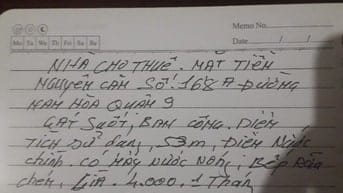 Memo No.
Mo Tu We Th Fr Sa Su
Date / /
NHÀ CHO THUÊ. MẶT TIỀN
NGUYÊN CĂN SỐ. 168A ĐƯỜNG
NAM HÒA QUẬN 9
GÁT SUỐT, BAN CÔNG. DIỆN
TÍCH SỬ dụng, 53m, ĐIỆN NƯỚC
chính. CÓ MÁY NƯỚC NÓNG, BẾP RỬA
chén, GIÁ. 4.000. 1 Thán